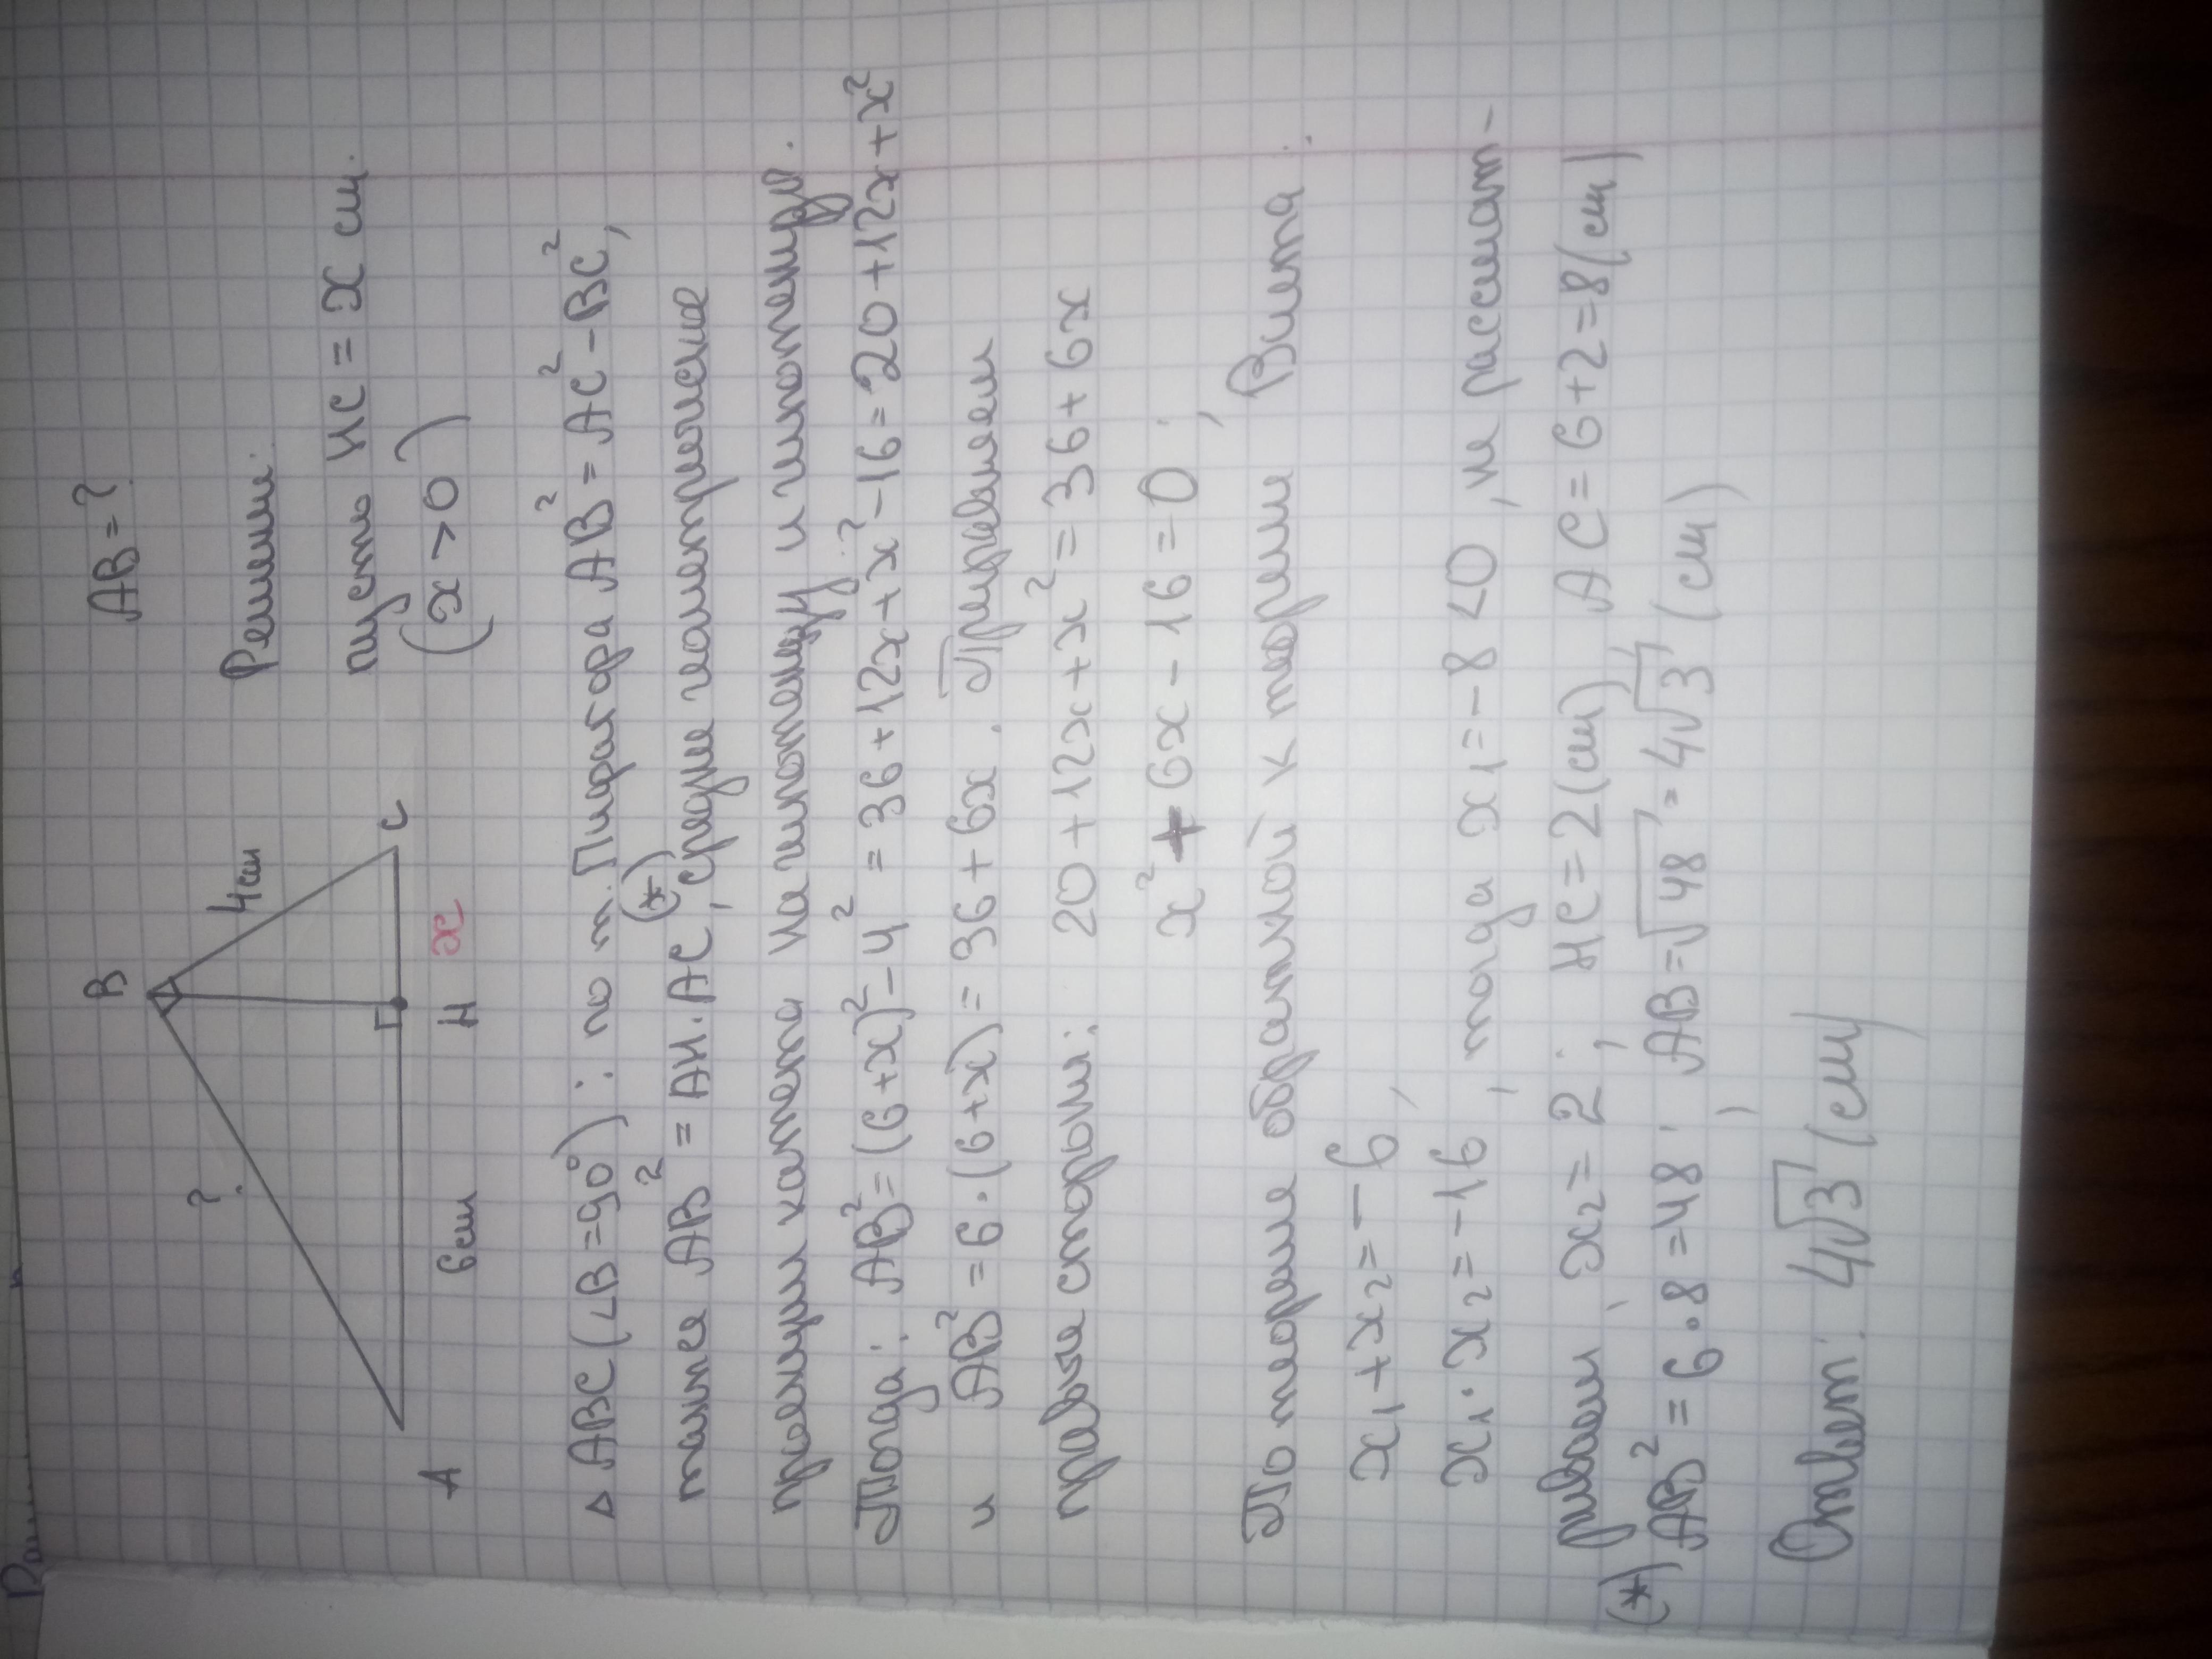 B
?
4см
A
6см
H
x
C
AB=?
Решение:
пусть HC = x см.
(x > 0)
△ ABC (∠B=90°): по т. Пифагора AB² = AC² - BC²,
также AB² = AH·AC (*), среднее геометрическое
проекции катета на гипотенузу и гипотенузы.
Тогда: AB² = (6+x)² - 4² = 36+12x+x²-16 = 20+12x+x²
и AB² = 6·(6+x) = 36+6x. Приравняем
правые стороны: 20+12x+x² = 36+6x
x² + 6x - 16 = 0;
По теореме обратной к теореме Виета:
x₁+x₂ = -6,
x₁·x₂ = -16, тогда x₁ = -8 < 0, не рассмат-
риваем, x₂ = 2; HC = 2(см), AC = 6+2 = 8(см)
(*) AB² = 6·8 = 48; AB = √48 = 4√3 (см)
Ответ: 4√3 (см)